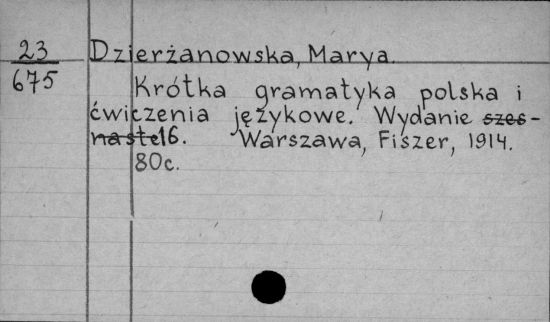 23
675
Dzierżanowska, Marya.
Krótka gramatyka polska i
ćwiczenia językowe. Wydanie szes-
naste 16. Warszawa, Fiszer, 1914.
80c.